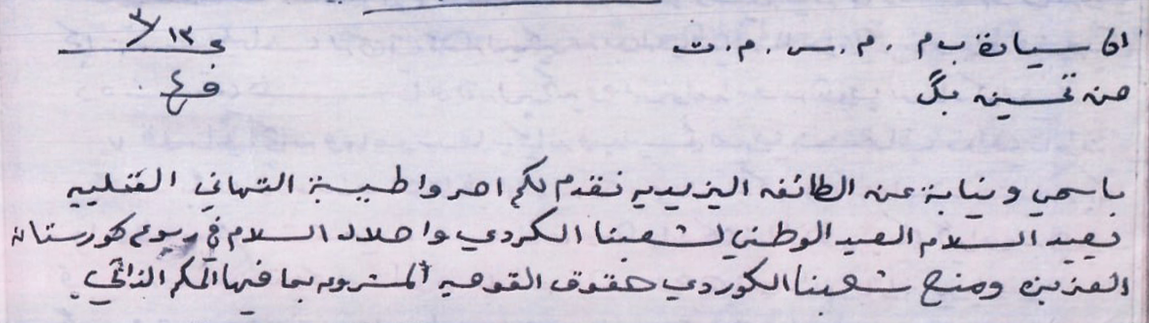 الى سيادة ب م . م . س . م . ت
من تحسين بگ
ج ١٣/٣
ف ٤
باسمي ونيابة عن الطائفه اليزيديه نقدم لكم احر واطيب التهاني القلبيه
بعيد السلام العيد الوطني لشعبنا الكردي واحلال السلام في ربوع كورستان
العزيزه ومنح شعبنا الكوردي حقوق القوميه المشروعه بما فيها الحكم الذاتي .